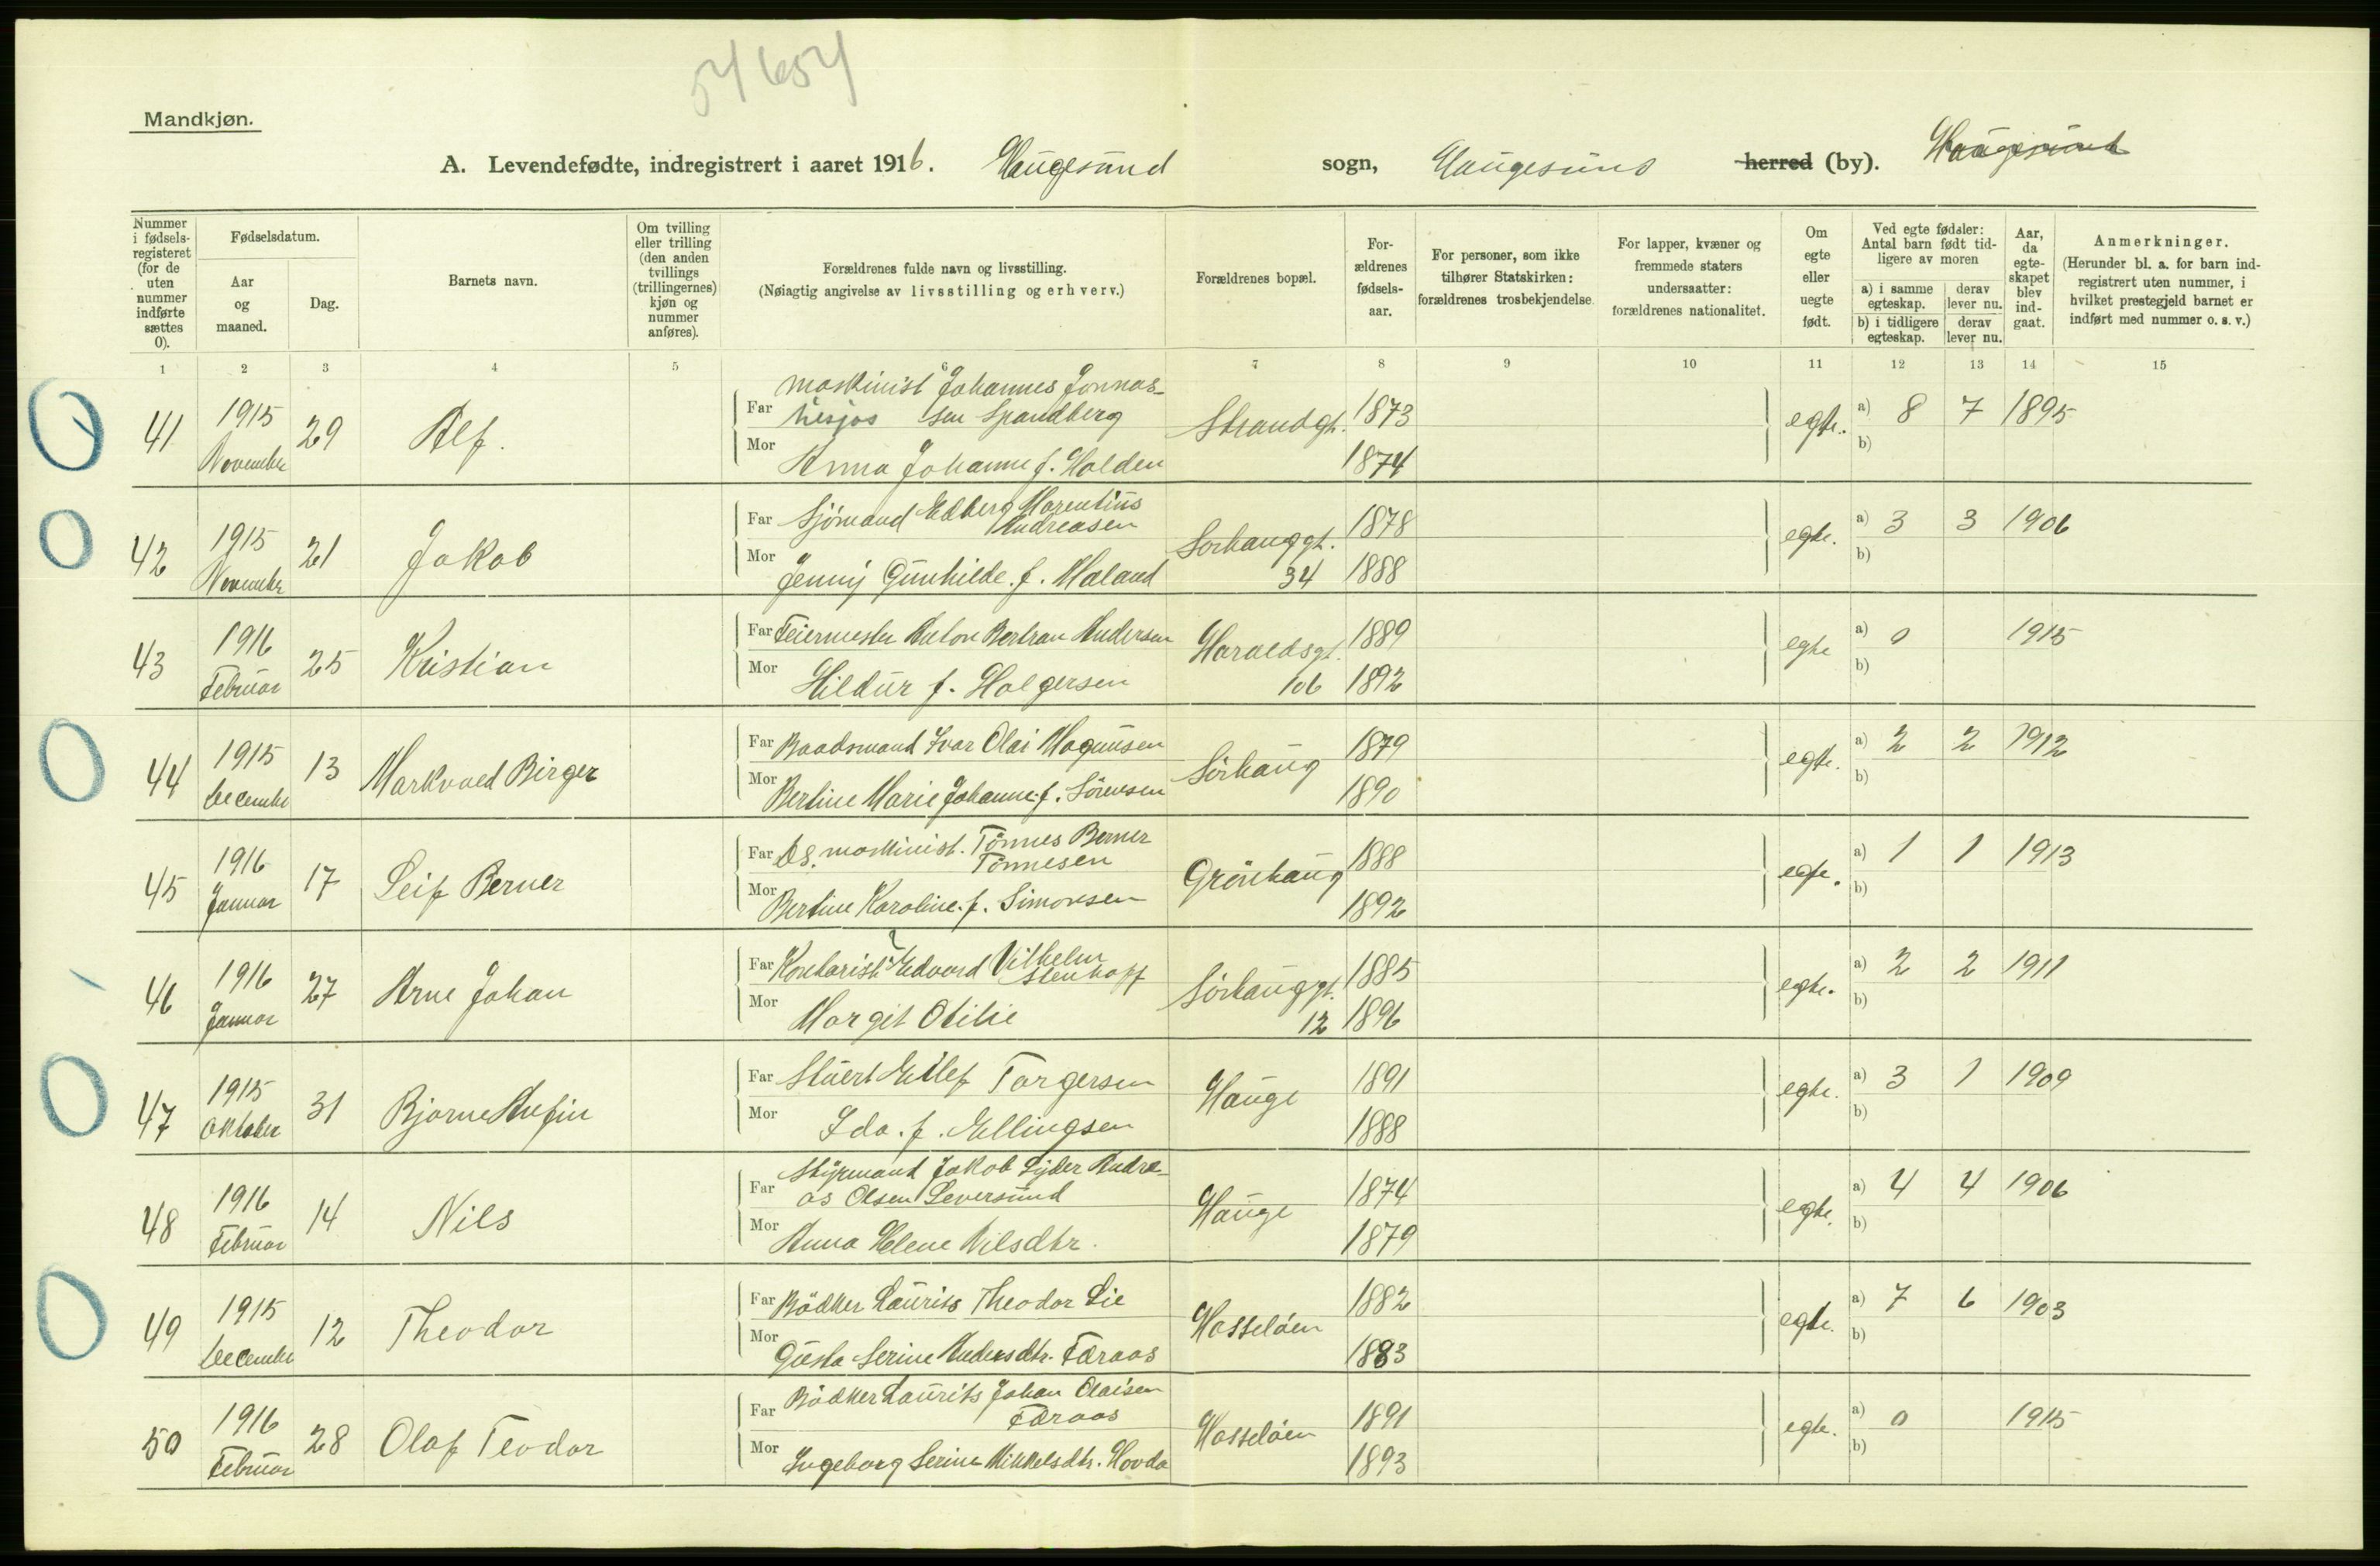 54654
Mandkjøn.
A. Levendefødte, indregistrert i aaret 1916. Haugesund sogn, Haugesund herred (by). Haugesund
Nummer i fødsels-registeret (for de uten nummer indførte sættes 0).
Fødselsdatum.
Aar og maaned.
Dag.
Barnets navn.
Om tvilling eller trilling (den anden tvillings (trillingernes) kjøn og nummer anføres).
Forældrenes fulde navn og livsstilling.
(Nøiagtig angivelse av livsstilling og erhverv.)
Forældrenes bopæl.
For-ældrenes fødsels-aar.
For personer, som ikke tilhører Statskirken: forældrenes trosbekjendelse.
For lapper, kvæner og fremmede staters undersaatter: forældrenes nationalitet.
Om egte eller uegte født.
Ved egte fødsler: Antal barn født tid-ligere av moren
a) i samme egteskap. derav lever nu.
b) i tidligere egteskap. derav lever nu.
Aar, da egte-skapet blev ind-gaat.
Anmerkninger.
(Herunder bl. a. for barn ind-registrert uten nummer, i hvilket prestegjeld barnet er indført med nummer o. s. v.)
1 2 3 4 5 6 7 8 9 10 11 12 13 14 15
41 1915 November 29 Alf.
Far maskinist Johannes Jonnas-
sen Spandberg
Mor Anna Johanne f. Holden
Strandgt. 1873 1874 egte. a) 8 7 1895 b)
42 1915 November 21 Jakob
Far Sjømand Edberg Marentius
Andreasen
Mor Jenny Gunhilde. f. Haland
Sørhauggt. 34 1878 1888 egte. a) 3 3 1906 b)
43 1916 Februar 25 Kristian
Far Feiermester Anton Bertran Andersen
Mor Hildur f. Holgersen
Haraldsgt. 106 1889 1892 egte a) 0 1915 b)
44 1915 December 13 Markvald Birger
Far Baadsmand Ivar Olai Magnusen
Mor Bertine Marie Johanne. f. Sörensen
Sörhaug 1879 1890 egte. a) 2 2 1912 b)
45 1916 Januar 17 Leif Berner
Far Ds. maskinist. Tönnes Berner
Tönnesen
Mor Bertine Karoline. f. Simonsen
Grönhaug 1888 1892 egte. a) 1 1 1913 b)
46 1916 Januar 27 Arne Johan
Far Kontorist Edvard Vilhelm
Stenhoff
Mor Margit Otilie
Sörhauggt. 12 1885 1896 egte. a) 2 2 1911 b)
47 1915 Oktober 31 Bjarne Anfin
Far Stuert Eilef Torgersen
Mor Ida. f. Ellingsen
Hauge 1891 1888 egte. a) 3 1 1909 b)
48 1916 Februar 14 Nils
Far Styrmand Jakob Lyder Andre-
as Olsen Leversund
Mor Anna Helene Nilsdtr.
Hauge 1874 1879 egte. a) 4 4 1906 b)
49 1915 December 12 Theodor
Far Bödker Laurits Theodor Lie
Mor Gusta Serine Andersdtr. Færaas
Hasseløen 1882 1883 egte. a) 7 6 1903 b)
50 1916 Februar 28 Olaf Teodor
Far Bödker Laurits Johan Olaisen
Færaas
Mor Ingeborg Serine Mikkelsdtr. Hovda
Hasseløen 1891 1893 egte. a) 0 1915 b)